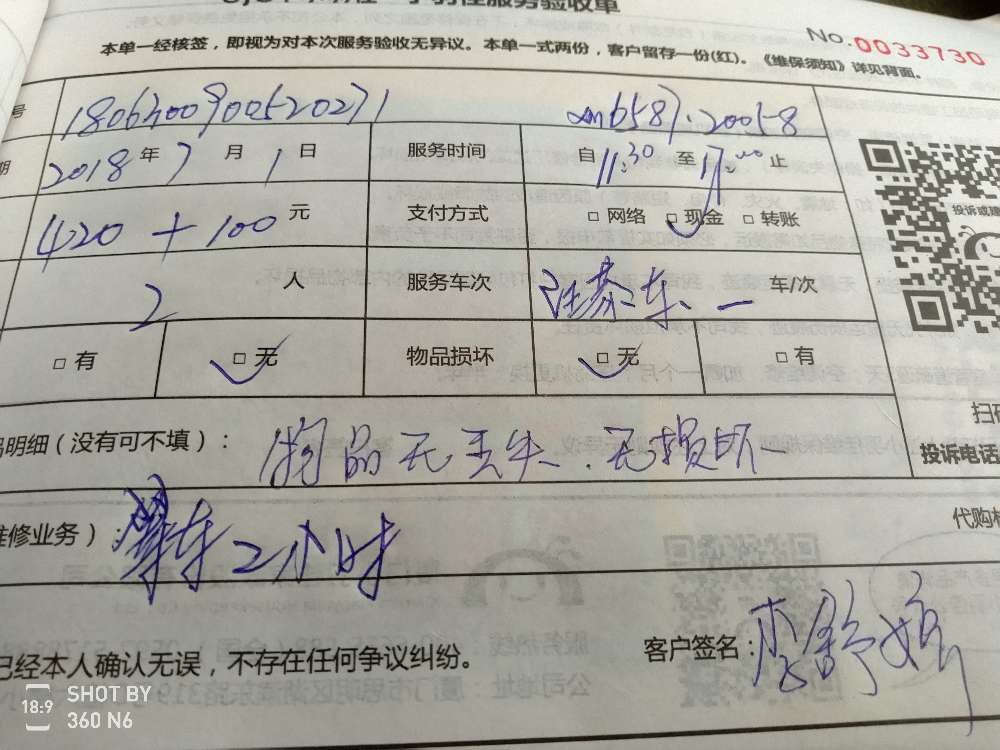 性服务验收单
No.0033730
本单一经核签，即视为对本次服务验收无异议。本单一式两份，客户留存一份(红)。《维保须知》详见背面。
号
期 2018年7月1日 服务时间 自11:30至17:00止
420+100元 支付方式 □网络 □现金 □转账
投诉或建
2人 服务车次 一车/次
□有 □无 物品损坏 □无 □有
扫码
明细（没有可不填）： 物品无丢失、无损坏
投诉电话
维修业务）： 2小时
代购材
已经本人确认无误，不存在任何争议纠纷。
客户签名：
SHOT BY
18:9
360 N6